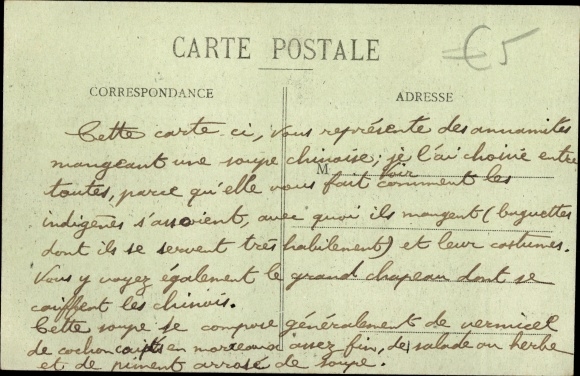 €5
CARTE POSTALE
CORRESPONDANCE
ADRESSE
M
Cette carte ci, vous représente des annamites
mangeant une soupe chinoise; je l'ai choisie entre
toutes, parce qu'elle vous fait voir comment les
indigènes s'assoient, avec quoi ils mangent (baguettes
dont ils se servent très habilement) et leur costumes.
Vous y voyez également le grand chapeau dont se
coiffent les chinois.
Cette soupe se compose généralement de vermicel
de cochon coupés en morceaux assez fin, de salade ou herbe
et de piment arrosé de soupe.